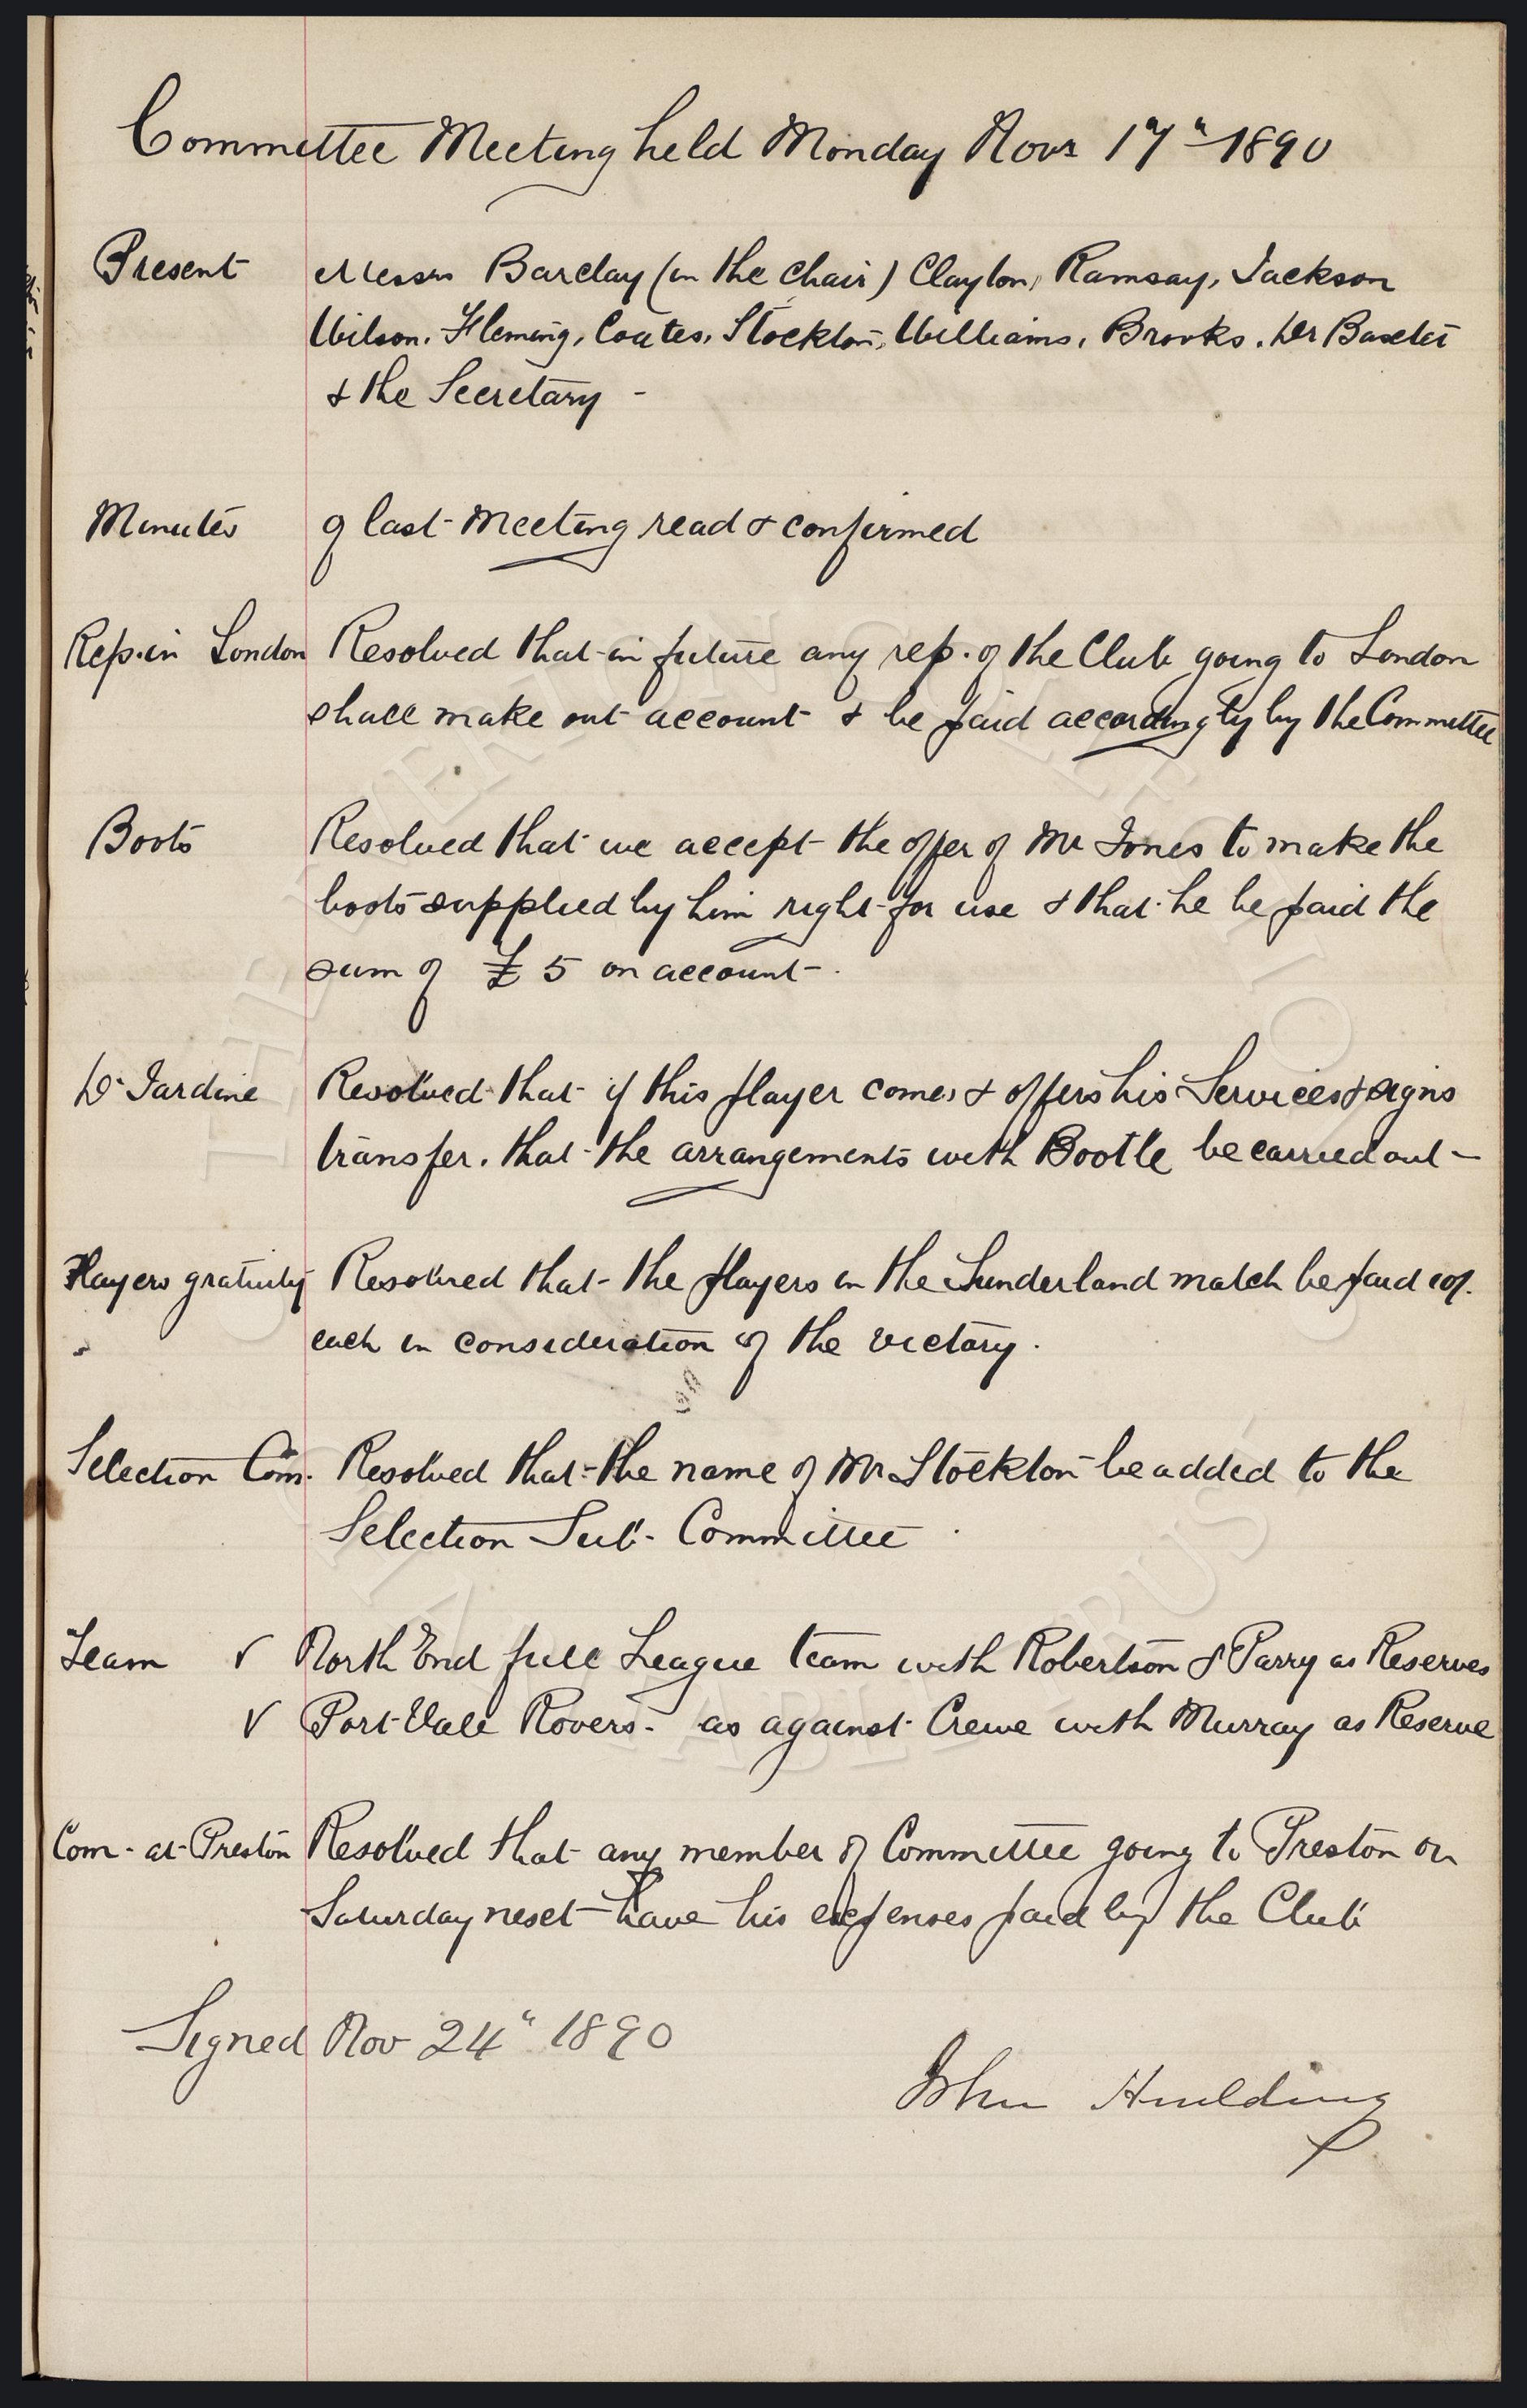 Committee Meeting held Monday Novr 17th 1890
Present Messrs Barclay (in the chair) Clayton, Ramsay, Jackson
Wilson, Fleming, Coates, Stockton, Williams, Brooks, Dr Baxter
& the Secretary -
Minutes of last Meeting read & confirmed
Rep. in London Resolved that in future any rep. of the Club going to London
shall make out account & be paid accordingly by the Committee
Boots Resolved that we accept the offer of Mr Jones to make the
boots supplied by him right for use & that he be paid the
sum of £5 on account -.
D. Jardine Resolved that if this player comes & offers his Services & signs
transfer. that the arrangements with Bootle be carried out -
Players gratuity Resolved that the players in the Sunderland match be paid 10/-
each in consideration of the victory.
Selection Com. Resolved that the name of Mr Stockton be added to the
Selection Sub-Committee.
Team √ North End full League team with Robertson & Parry as Reserves
√ Port Vale Rovers - as against Crewe with Murray as Reserve
Com. at Preston Resolved that any member of Committee going to Preston on
Saturday next have his expenses paid by the Club
Signed Nov 24" 1890
John Houlding
THE EVERTON COLLECTION